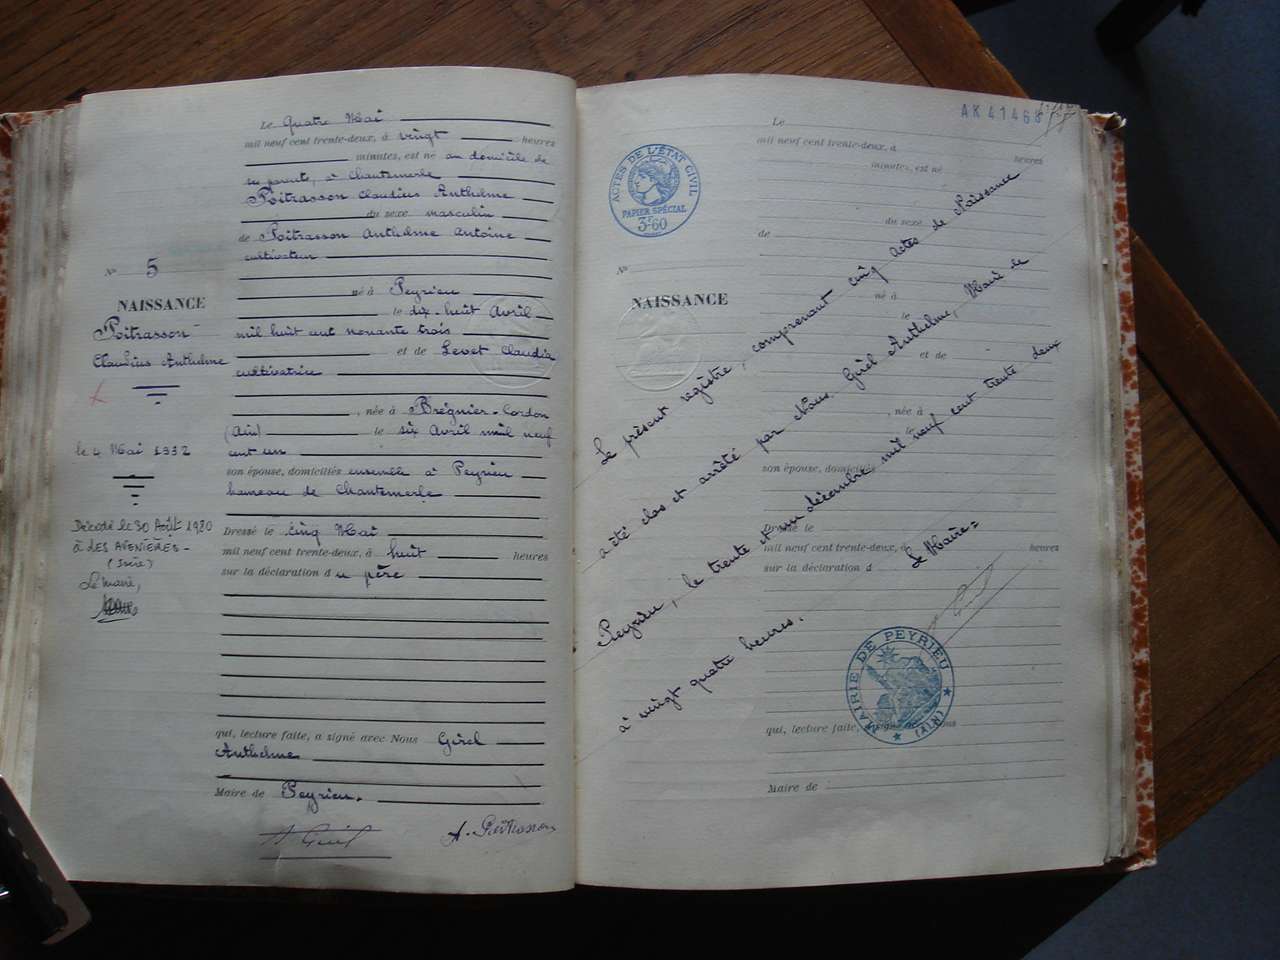 Le Quatre Mai
mil neuf cent trente-deux, à vingt heures
minutes, est né au domicile de
ses parents, à Chantemerle
Poitrasson Claudius Anthelme
du sexe masculin
de Poitrasson Anthelme Antoine
cultivateur
né à Peyrieu
le dix-huit Avril
mil huit cent nonante trois
et de Levet Claudia
cultivatrice
, née à Brégnier-Cordon
(Ain) le six Avril mil neuf
cent un
son épouse, domiciliés ensemble à Peyrieu
hameau de Chantemerle
Dressé le cinq Mai
mil neuf cent trente-deux, à huit heures
sur la déclaration du père
qui, lecture faite, a signé avec Nous Girel
Anthelme
Maire de Peyrieu.
A. Girel
A. Poitrasson
No 5
NAISSANCE
Poitrasson
Claudius Anthelme
le 4 Mai 1932
Décédé le 30 Août 1980
à LES AVENIÈRES-
(Isère)
Le Maire,
AK 41468
ACTES DE L'ÉTAT CIVIL
PAPIER SPÉCIAL
3F60
No
NAISSANCE
Le
mil neuf cent trente-deux, à heures
minutes, est né
du sexe
de
né à
le
et de
, née à
le
son épouse, domiciliés
Dressé le
mil neuf cent trente-deux, à heures
sur la déclaration d
qui, lecture faite, a signé avec Nous
Maire de
Le présent registre, comprenant cinq actes de Naissance
a été clos et arrêté par Nous, Girel Anthelme, Maire de
Peyrieu, le trente et un décembre mil neuf cent trente deux
à vingt quatre heures.
Le Maire=
MAIRIE DE PEYRIEU
(AIN)